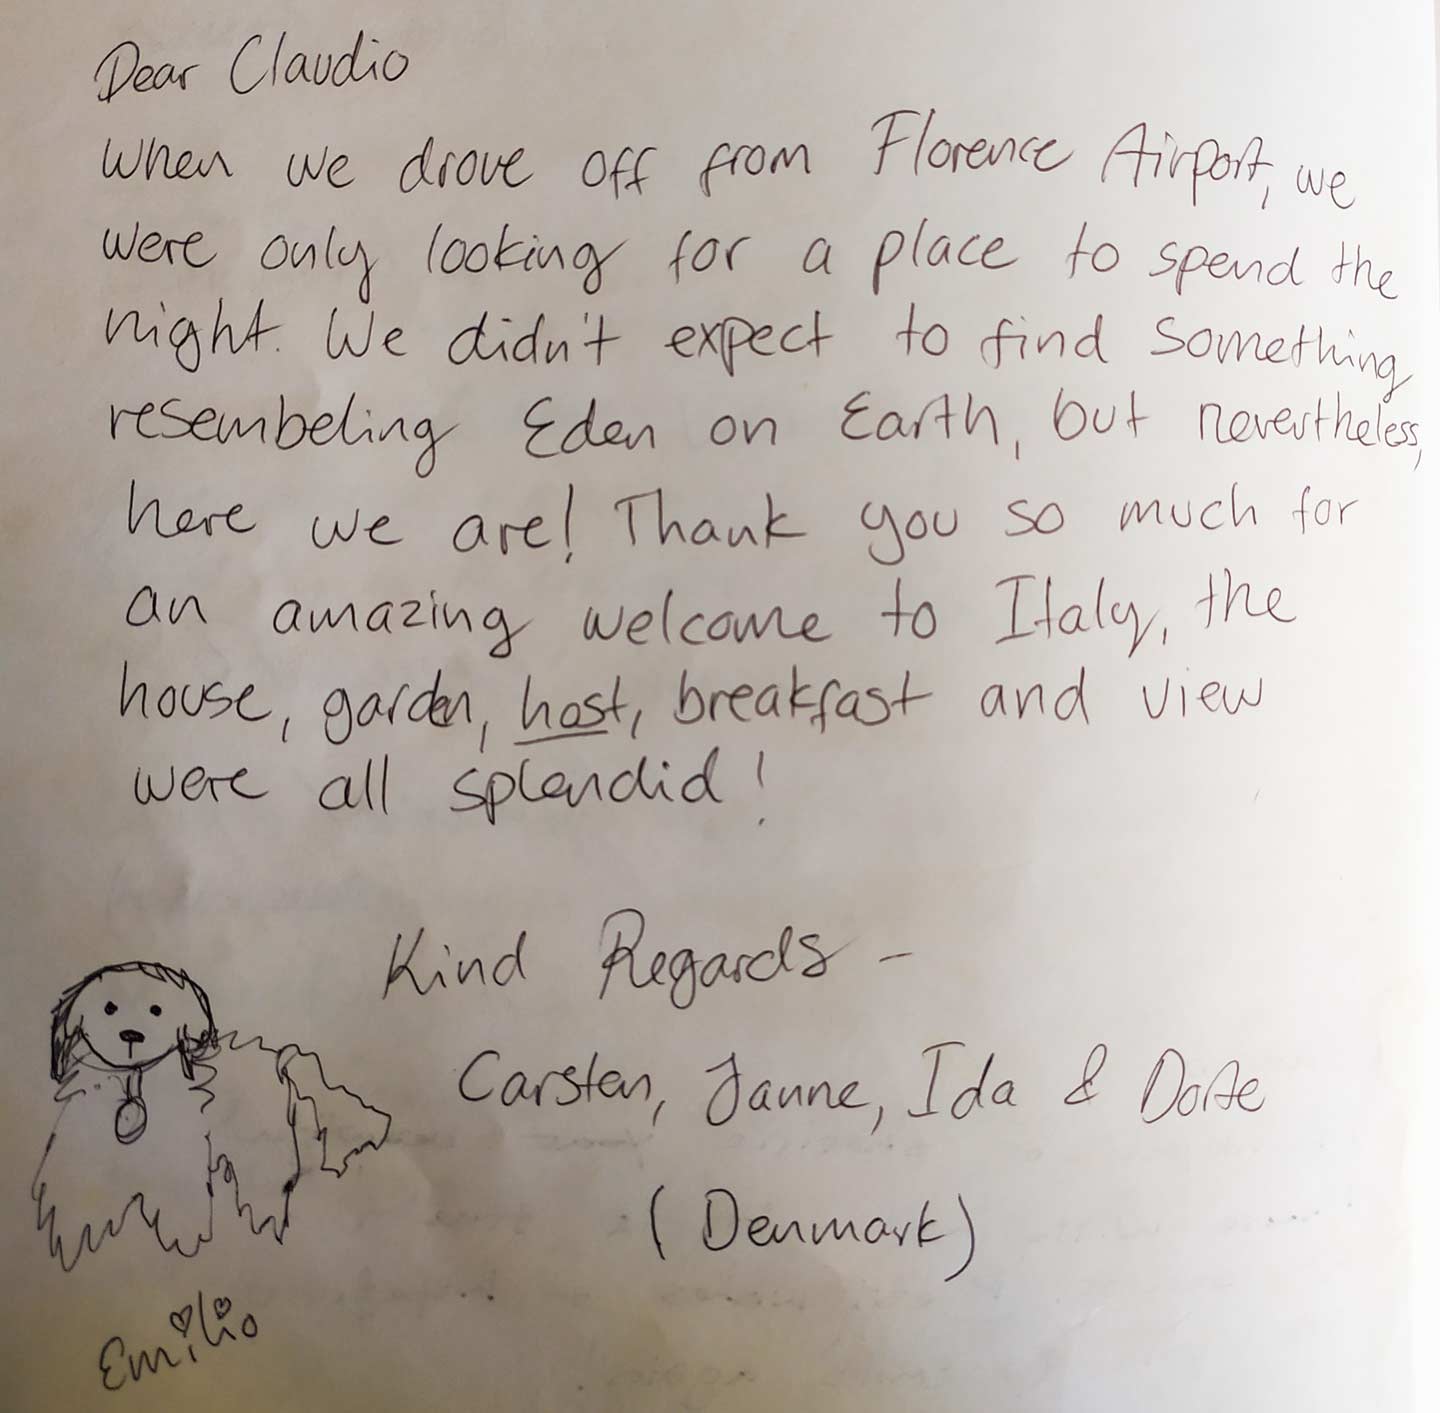 Dear Claudio
When we drove off from Florence Airport, we
were only looking for a place to spend the
night. We didn't expect to find something
resembeling Eden on Earth, but nevertheless,
here we are! Thank you so much for
an amazing welcome to Italy, the
house, garden, host, breakfast and view
were all splendid!
Kind Regards -
Carsten, Janne, Ida & Dorte
(Denmark)
Emilio